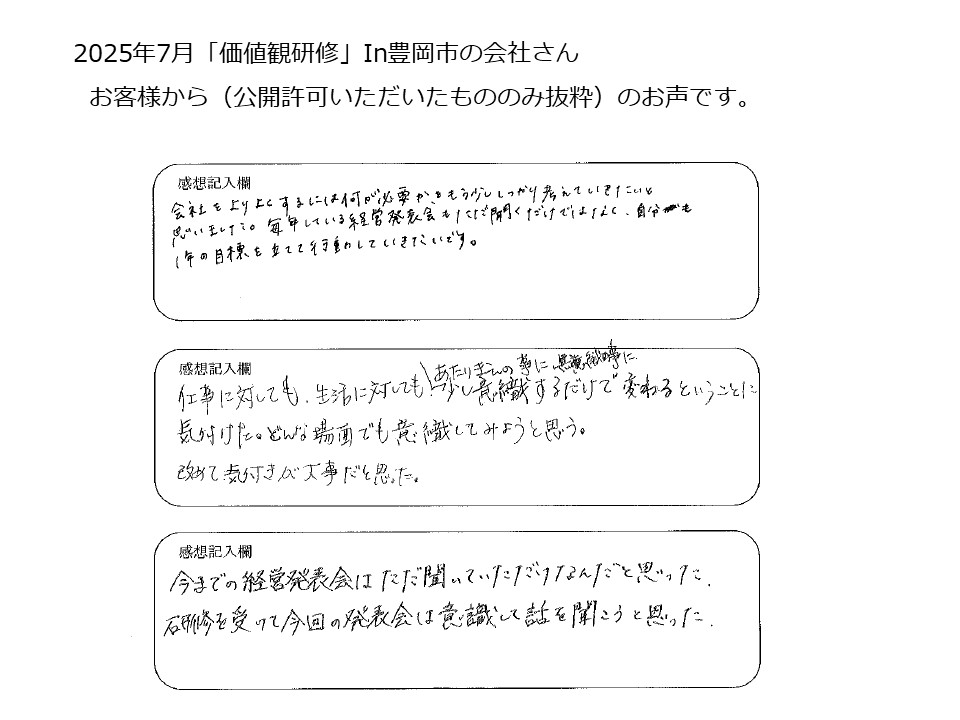 2025年7月「価値観研修」In豊岡市の会社さん
お客様から（公開許可いただいたもののみ抜粋）のお声です。
感想記入欄
会社をよりよくするには何が必要かをもう少ししっかり考えていきたいと
思いました。毎年している経営発表会もただ聞くだけではなく、自分も
1年の目標を立てて行動していきたいです。
感想記入欄
あたりまえの事に
仕事に対しても、生活に対しても、少し意識するだけで変わるということに
気付けた。どんな場面でも意識してみようと思う。
改めて気付きが大事だと思った。
感想記入欄
今までの経営発表会はただ聞いていただけなんだと思った。
研修を受けて今回の発表会は意識して話を聞こうと思った。